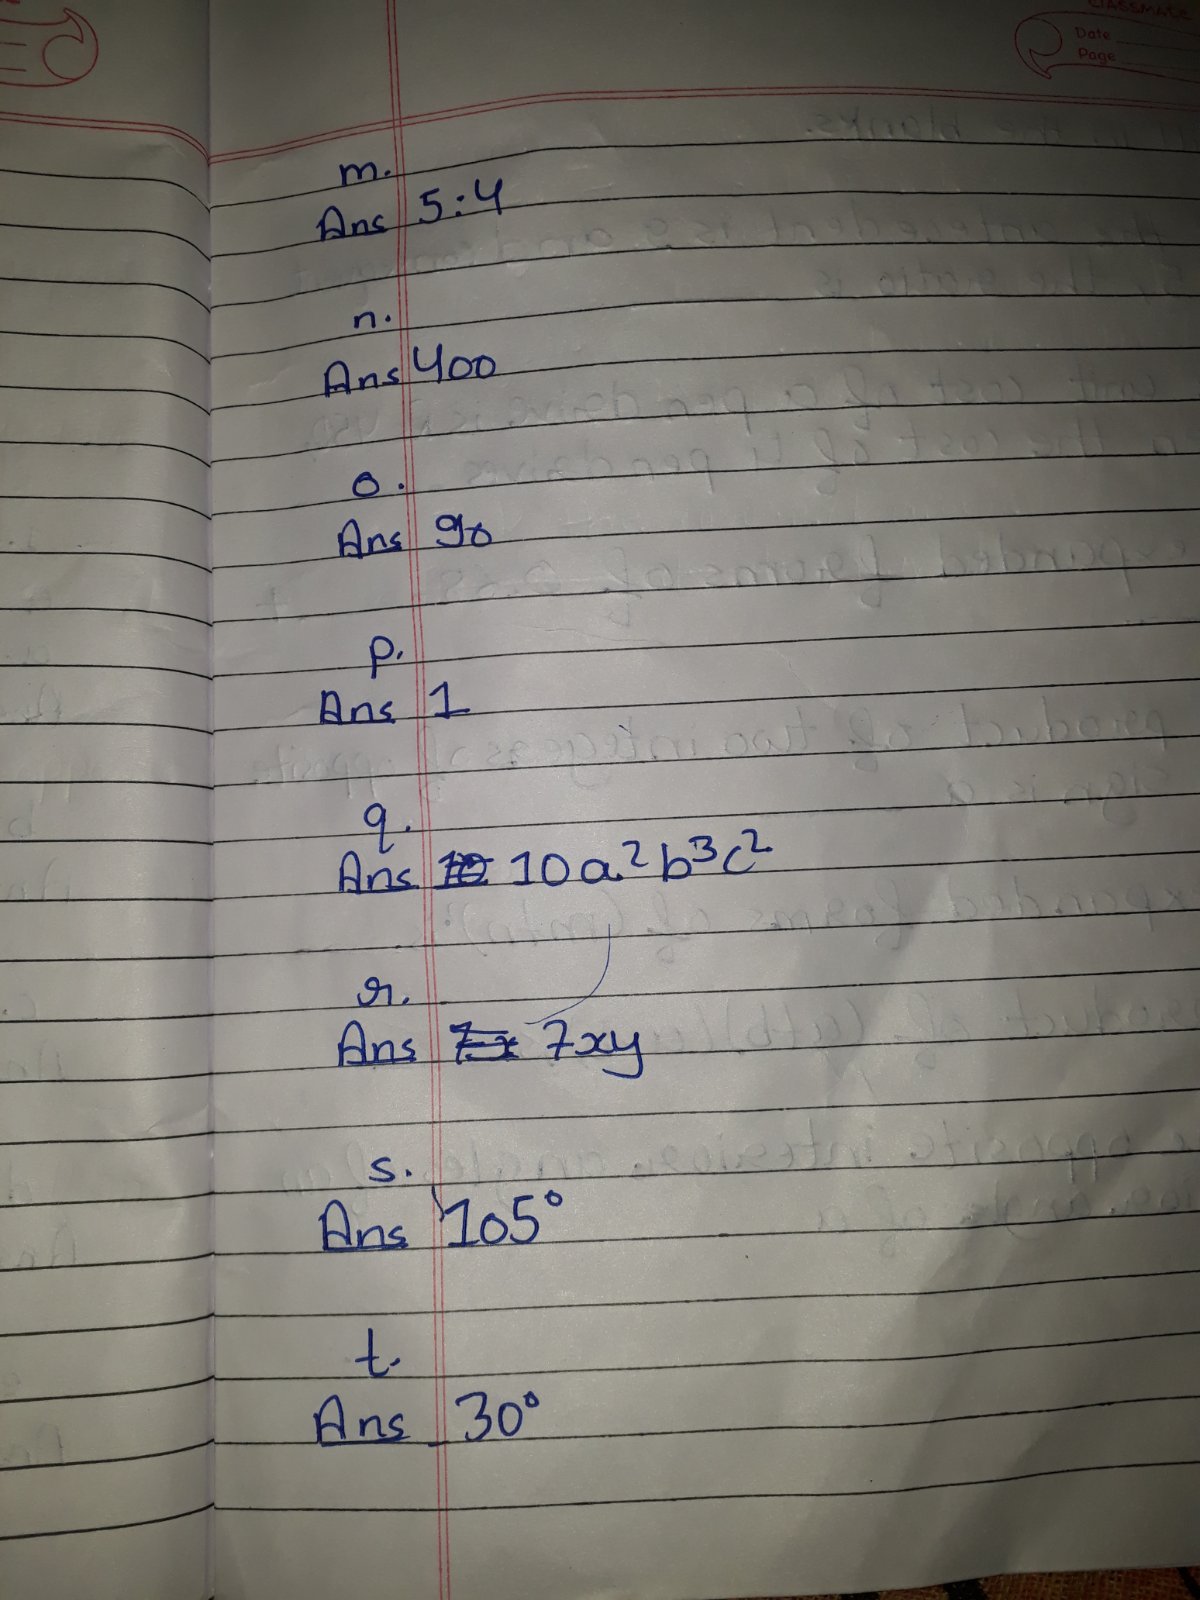 CLASSMATE
Date
Page
m.
Ans 5:4
n.
Ans 400
o.
Ans 90
p.
Ans 1
q.
Ans 10a²b³c²
r.
Ans 7xy
s.
Ans 105°
t.
Ans 30°